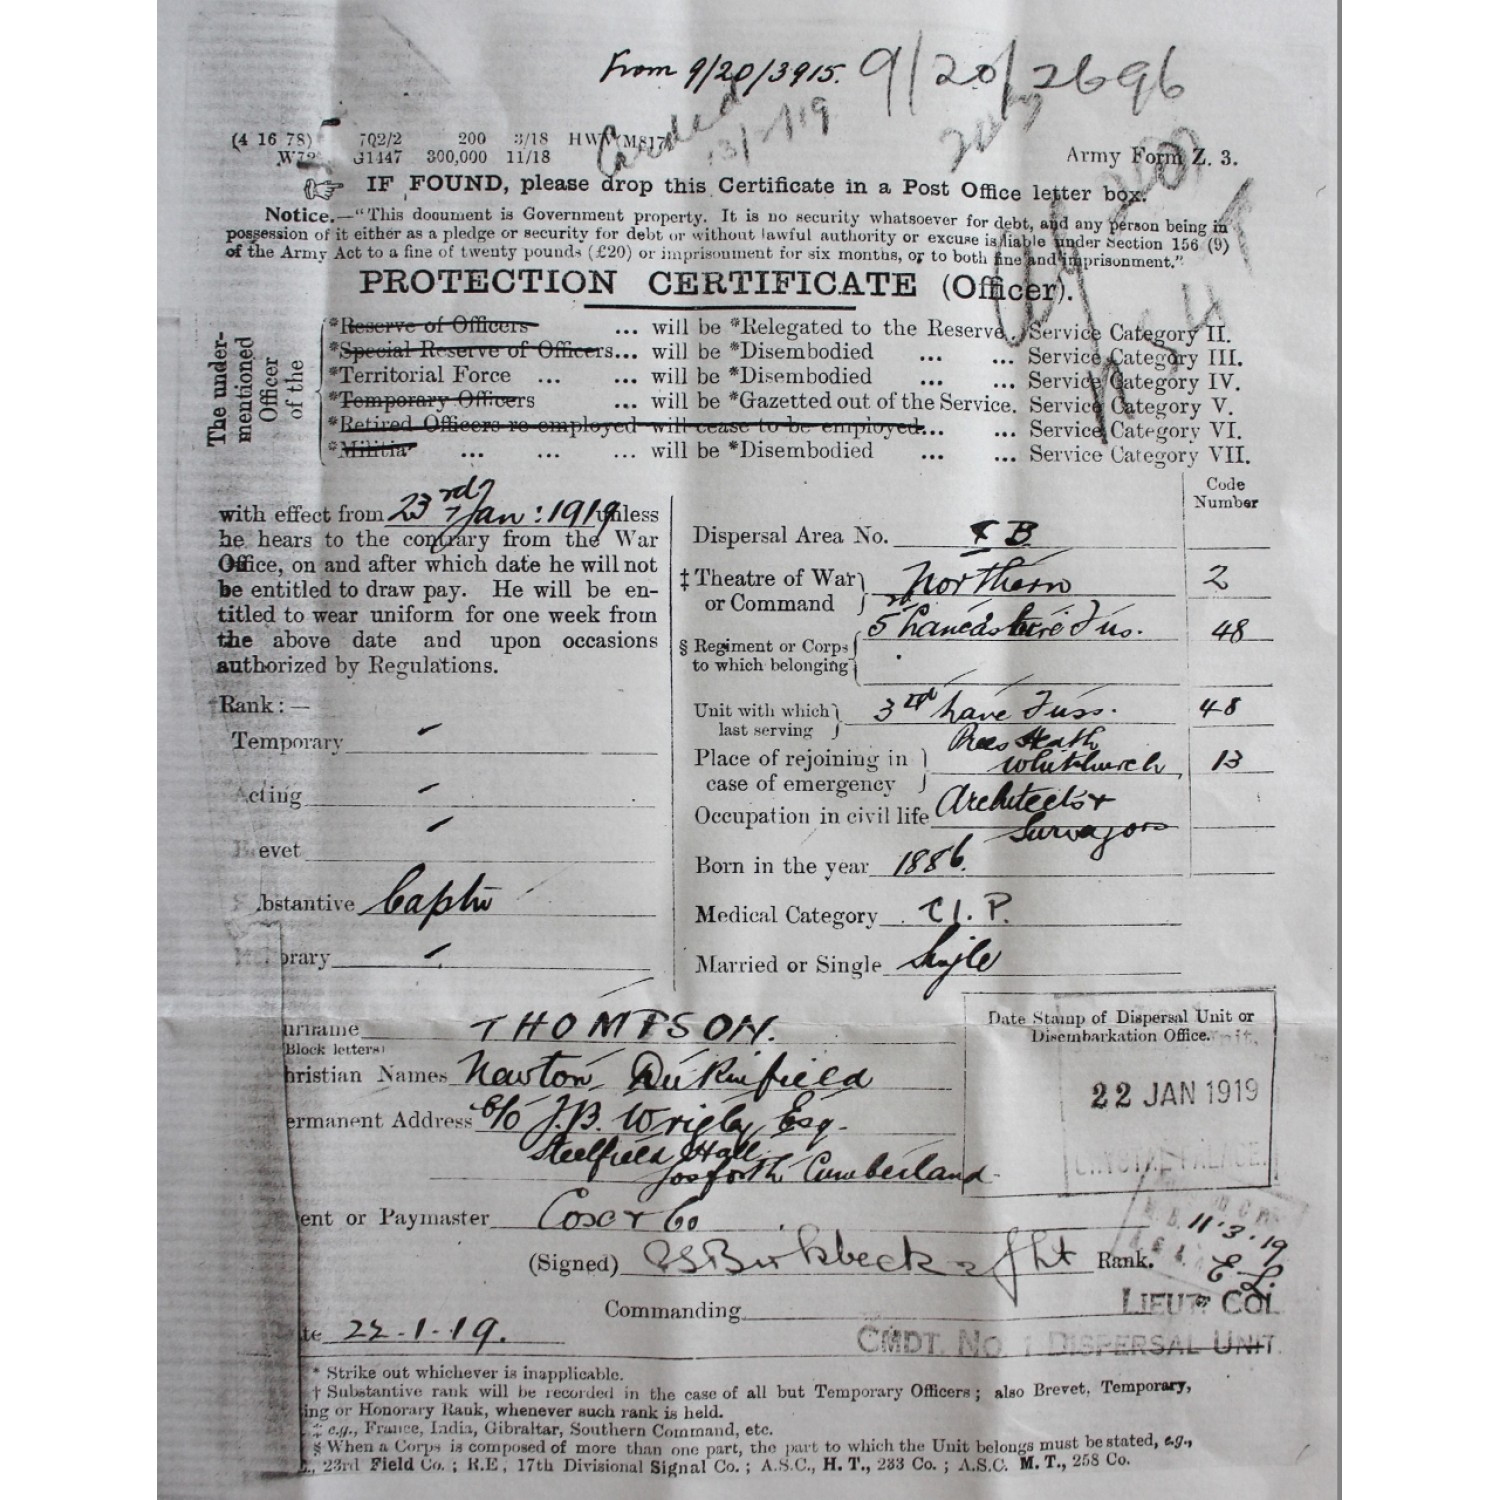 From 9/20/3915. 9/20/2696
(4 16 78) 7Q2/2 200 3/18 HWV(M817)
G1447 300,000 11/18
Army Form Z. 3.
IF FOUND, please drop this Certificate in a Post Office letter box.
Notice.—"This document is Government property. It is no security whatsoever for debt, and any person being in
possession of it either as a pledge or security for debt or without lawful authority or excuse is liable under Section 156 (9)
of the Army Act to a fine of twenty pounds (£20) or imprisonment for six months, or to both fine and imprisonment."
PROTECTION CERTIFICATE (Officer).
The under-mentioned Officer of the
*Reserve of Officers ... will be *Relegated to the Reserve, Service Category II.
*Special Reserve of Officers... will be *Disembodied ... ... Service Category III.
*Territorial Force ... ... will be *Disembodied ... ... Service Category IV.
*Temporary Officers ... will be *Gazetted out of the Service. Service Category V.
*Retired Officers re-employed will cease to be employed... ... Service Category VI.
*Militia ... ... ... will be *Disembodied ... ... Service Category VII.
with effect from 23rd Jan: 1919 unless
he hears to the contrary from the War
Office, on and after which date he will not
be entitled to draw pay. He will be en-
titled to wear uniform for one week from
the above date and upon occasions
authorized by Regulations.
Rank:—
Temporary
Acting
Brevet
Substantive Captn
orary
Code
Number
Dispersal Area No. B
‡ Theatre of War
or Command Northern 2
§ Regiment or Corps
to which belonging 5 Lancashire Fus. 48
Unit with which
last serving 3rd Lanc Fuss. 48
Place of rejoining in
case of emergency Prees Heath
Whitchurch, 13
Occupation in civil life Architects &
Surveyors
Born in the year 1886.
Medical Category C1. P.
Married or Single Single
urname THOMPSON.
Block letters
hristian Names Newton Dukinfield
ermanent Address c/o J.B. Wrigley Esq.
Steelfield Hall
Gosforth Cumberland
Date Stamp of Dispersal Unit or
Disembarkation Office.
22 JAN 1919
CRYSTAL PALACE.
ent or Paymaster Cox & Co
11.3.19
(Signed) Birkbeck Rank.
E.L.
LIEUT. COL
Commanding
CMDT. No. 1 DISPERSAL UNIT.
te 22.1.19.
* Strike out whichever is inapplicable.
† Substantive rank will be recorded in the case of all but Temporary Officers; also Brevet, Temporary,
ing or Honorary Rank, whenever such rank is held.
‡ e.g., France, India, Gibraltar, Southern Command, etc.
§ When a Corps is composed of more than one part, the part to which the Unit belongs must be stated, e.g.,
23rd Field Co.; R.E, 17th Divisional Signal Co.; A.S.C., H. T., 233 Co.; A.S.C. M. T., 258 Co.